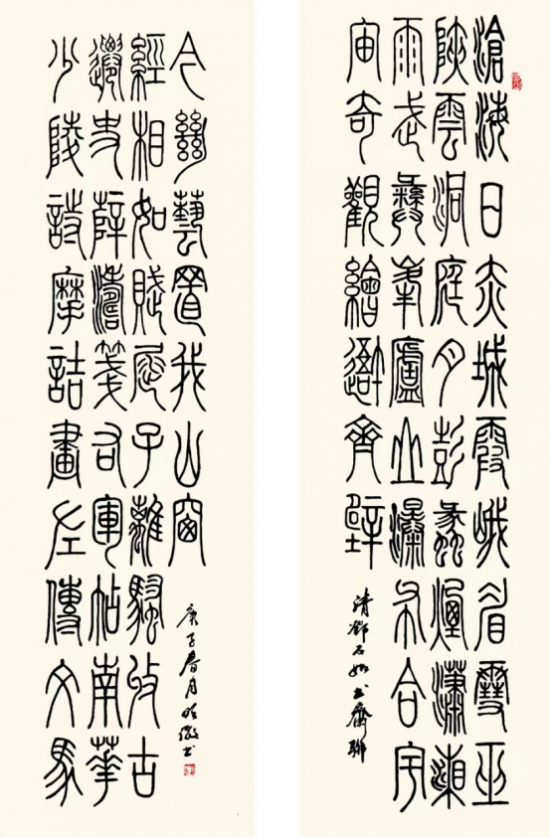 滄海日赤城霞峨眉雪巫
陜雲洞庭月彭蠡煙瀟湘
雨武彝峯廬山瀑布合宇
宙奇觀繪吾齊壁
清鄧石如書齋聯
少陵詩摩詰畫左傳文馬
遷史薛濤箋右軍帖南華
經相如賦屈子離騷收古
今絕藝置我山窗
庚子春月